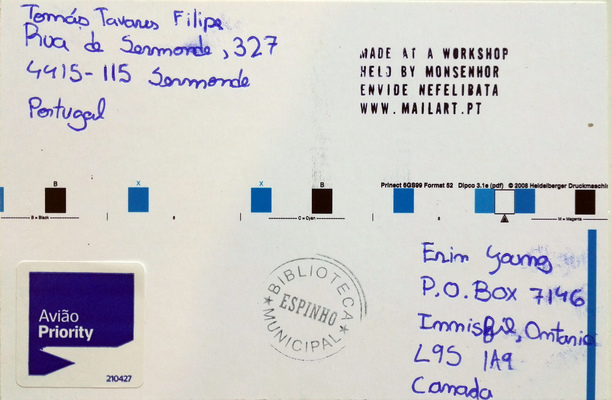 Tomás Tavares Filipe
Rua de Sermonde, 327
4415-115 Sermonde
Portugal
MADE AT A WORKSHOP
HELD BY MONSENHOR
ENVIDE NEFELIBATA
WWW.MAILART.PT
Prinect 6GS99 Format 52 Dipco 3.1e (pdf) © 2008 Heidelberger Druckmaschin
B X X B
B = Black C = Cyan M = Magenta
Erin Young
P.O. BOX 7146
Innisfil, Ontario
L9S 1A9
Canada
BIBLIOTECA
ESPINHO
MUNICIPAL
Avião
Priority
210427